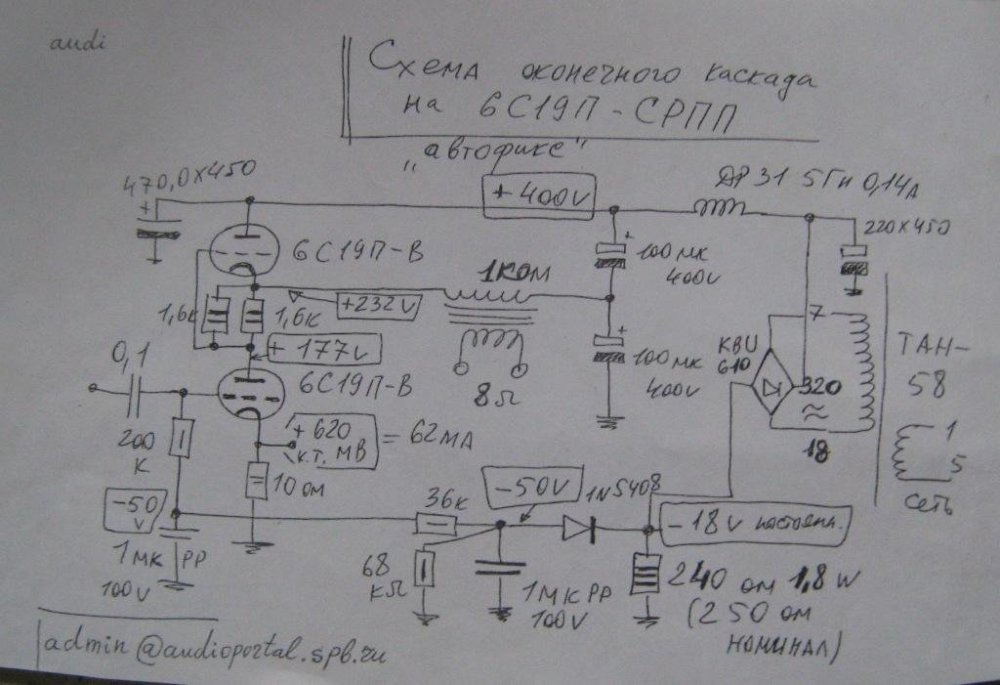 audi
Схема оконечного каскада
на 6С19П-СРПП
„автофикс"
470,0х450
+
+400v
ДР 31 5Гн 0,14А
220х450
6С19П-В
+
100 мк
400v
1КОМ
1,6к
1,6к
+232v
+177v
+
100 мк
400v
8Ω
KBU
610
7
320
≈
18
ТАН-
58
1
5
сеть
0,1
6С19П-В
200
К
+620
К.Т. МВ
= 62МА
10 ом
-50
v
36к
-50v
1N5408
-18v постоян.
1мк РР
100v
68
кΩ
1МК РР
100v
240 ом 1,8 w
(250 ом
номинал)
admin@audioportal.spb.ru